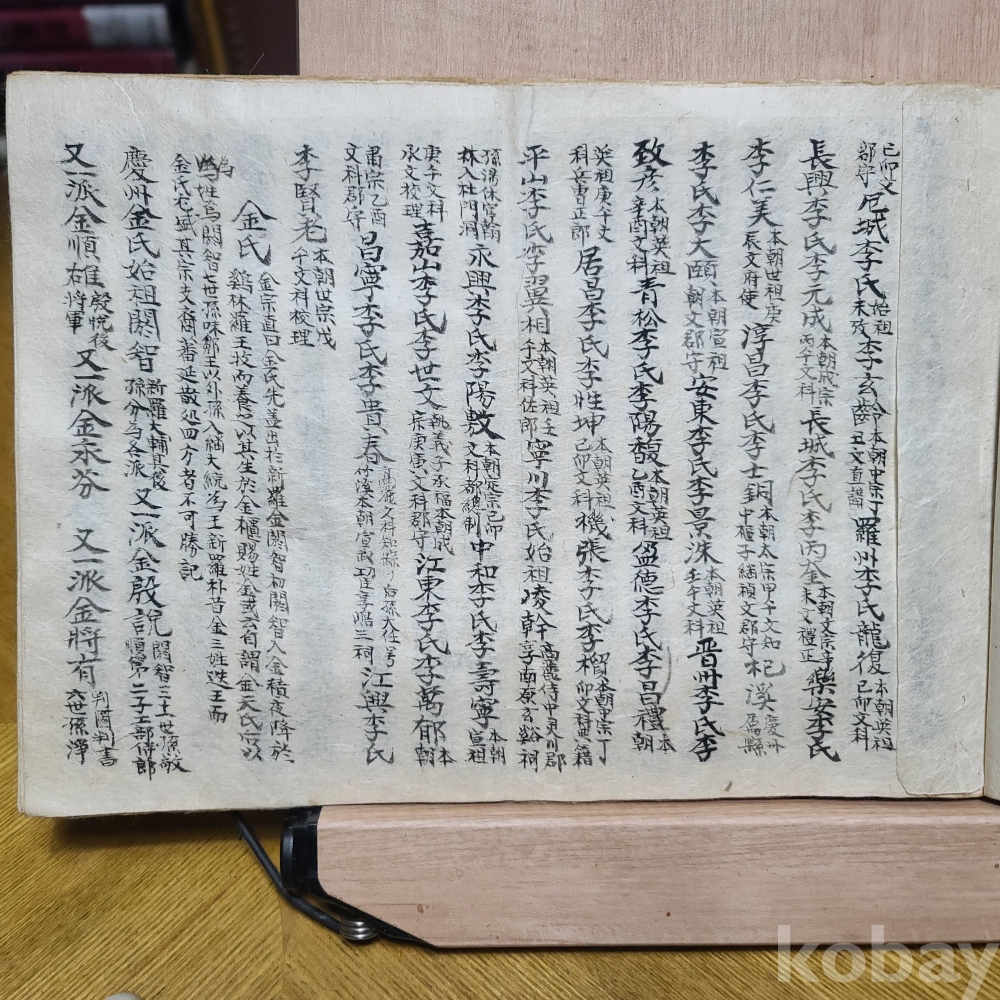 己卯文郡守 尼城李氏 始祖未攷 李玄齡 本朝中宗丁丑文直講 羅州李氏龍復 本朝英祖己卯文科
長興李氏李元成 本朝成宗丙午文科 長城李氏李丙全 本朝文宗辛未文禮正 樂安李氏
李仁美 本朝世祖庚辰文府使 淳昌李氏李士銅 本朝太宗甲午文知中樞子緬禎文郡守 杞溪 慶州屬縣
李氏李大頤 本朝宣祖朝文郡守 安東李氏李景洙 本朝英祖壬午文科 晋州李氏李
致彦 本朝英祖辛酉文科 青松李氏李陽馥 本朝英祖乙酉文科 盈德李氏李昌禮 本朝
英祖庚午文科 兵曹正郎 居昌李氏李性坤 本朝英祖己卯文科 機張李氏李榴 本朝中宗丁卯文科典籍
平山李氏李翼相 本朝英祖壬午文科佐郎 寧川李氏始祖凌幹 高麗侍中灵川郡享南原玄谿祠
孫湯休官翰林入杜門洞 永興李氏李陽敷 本朝定宗己卯文科都總制 中和李氏李壽寧 本朝宣祖
庚午文科承文校理 嘉山李氏李世文 執義子承福本朝成宗庚庚文科郡守 江東李氏李萬郁 本朝
肅宗乙酉文科郡守 昌寧李氏李貴春 高麗文科知縣 后孫大任号竹溪本朝宣武功臣享 三祠 江興李氏
李賢老 本朝世宗戊午文科校理
金氏 金宗直曰金氏先盖出於新羅金閼智初閼智入金積夜降於鷄林羅王收而養之以其生於金櫃賜姓金或云自謂金天氏裔以
為姓焉閼智七世孫味鄒王以外孫入緬大統為王新羅朴昔金三姓迭王而金氏尤盛其宗支裔蕃延散処四方者不可勝記
慶州金氏始祖閼智 新羅大輔其後孫分為各派 又一派金殷說 閼智三十一世孫敬順第二子工部侍郎
又一派金順雄 殷悅後將軍 又一派金永芬 又一派金將有 判圖判書六世孫淨
kobay